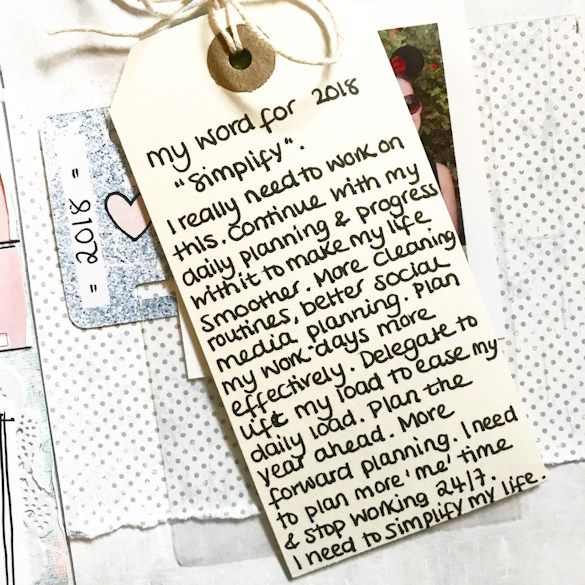 my word for 2018
"Simplify".
I really need to work on
this. Continue with my
daily planning & progress
with it to make my life
smoother. More cleaning
routines, better social
media planning. Plan
my work days more
effectively. Delegate to
lift my load to ease my
daily load. Plan the
year ahead. More
forward planning. I need
to plan more 'me' time
& stop working 24/7.
I need to simplify my life.
= 2018 =